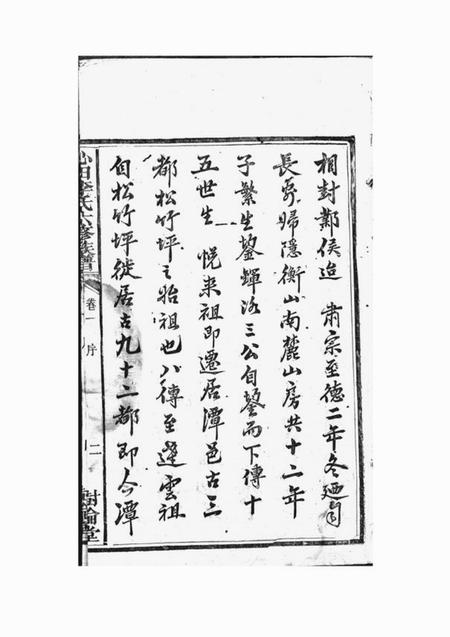 相封鄴侯迨　肅宗至德二年冬廼自
長安歸隱衡山南麓山房共十二年
子繁生鋆輝洺三公自鋆而下傳十
五世生　悅来祖即遷居潭邑古三
都松竹坪之始祖也八傳至蓬雲祖
自松竹坪徙居古九十二都即今潭
田李氏六修族譜
卷一　序
二
對綸堂